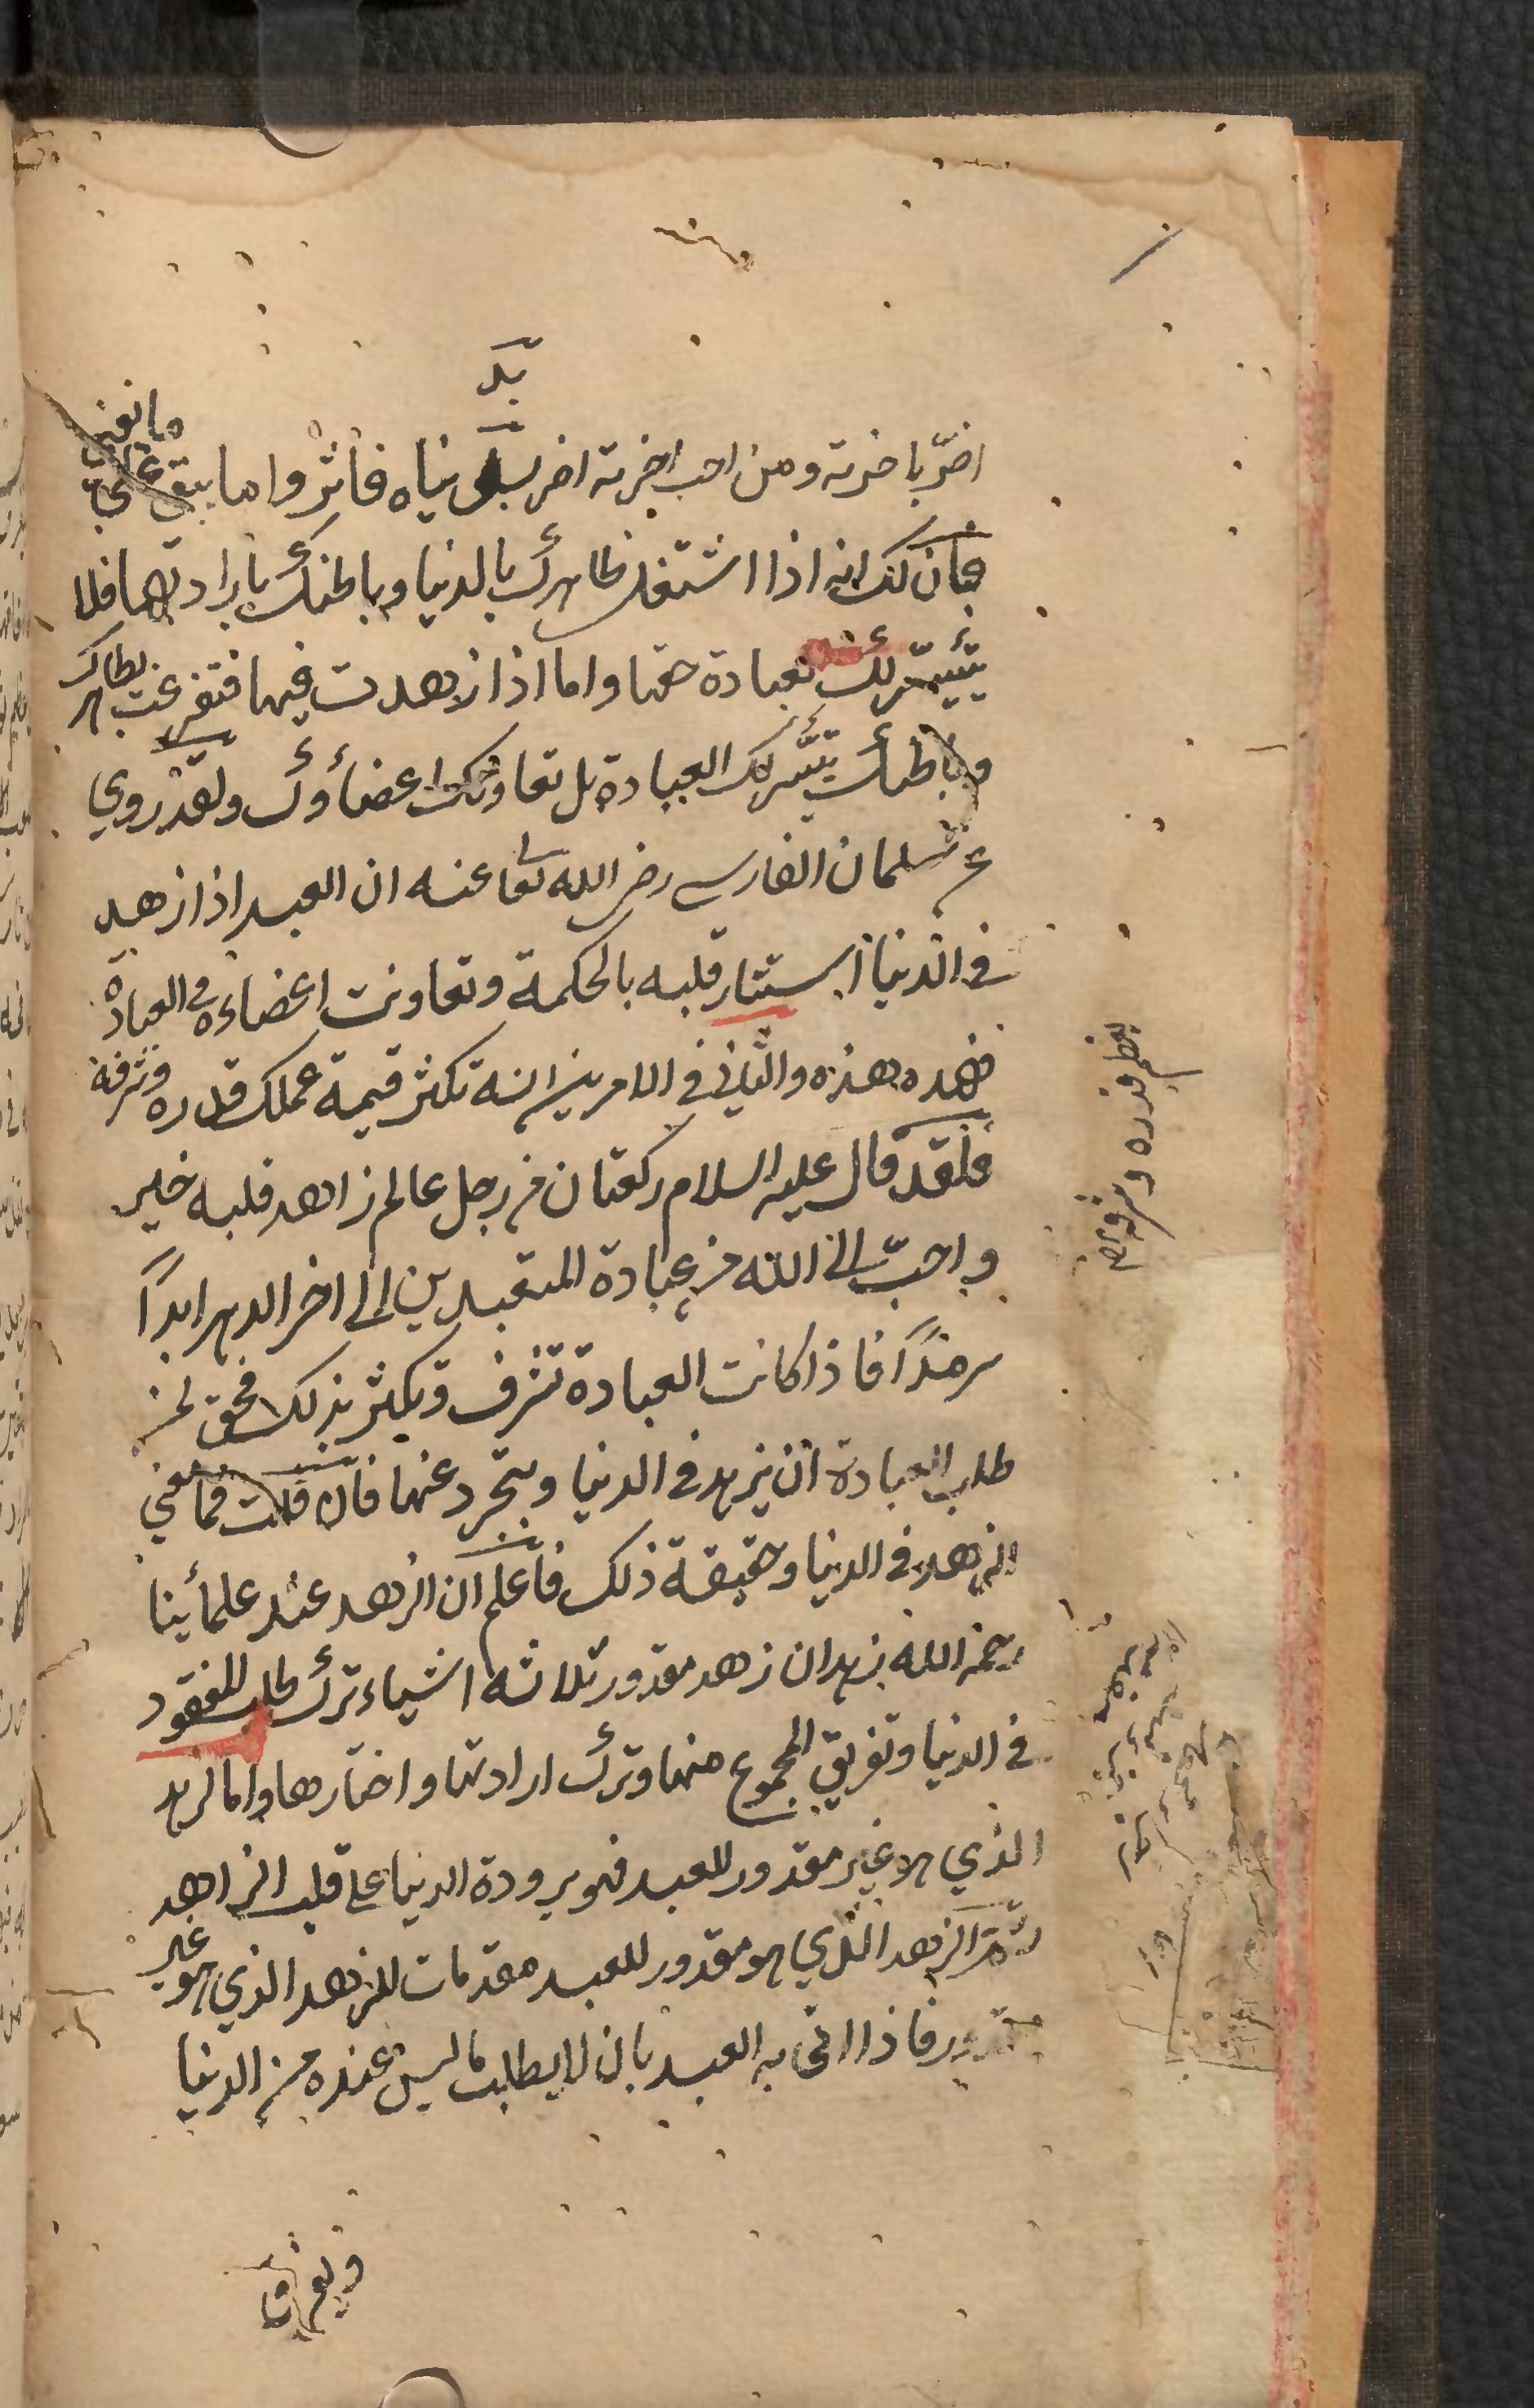 بد
اضرّ باخرته ومن احب اخرته اضر بدنياه فاثروا ما يبقى على
ما يفنى
فبان لك انه اذا اشتغل ظاهرك بالدنيا وباطنك بارادتها فلا
يتيسّر لك العبادة حقها واما اذا ازهدت فيها فتفرغت بظاهرك
وباطنك يتيسّر لك العبادة بل تعاونك اعضاؤك ولقد روي
عن سلمان الفارسي رضي الله تعا عنه ان العبد اذا زهد
في الدنيا استنار قلبه بالحكمة وتعاونت اعضاءه في العبادة
فهذه هذه والثاني في الامرين انه تكثر قيمة عملك قدره وشرفه
فلقد قال عليه السلام ركعتان من رجل عالم زاهد قلبه خير
واحبّ الى الله من عبادة المتعبدين الى اخر الدهر ابدًا
سرمدًا فاذا كانت العبادة تشرف وتكثر بذلك فحق لمن
طلب العبادة ان يزهد في الدنيا ويتجرد عنها فان قلت فما معنى
الزهد في الدنيا وحقيقة ذلك فاعلم ان الزهد عند علمائنا
رحمه الله زهدان زهد مقدور ثلاثه اشياء ترك طلب المفقود
في الدنيا وتفريق المجموع منها وترك ارادتها واختارها واما الزهد
الذي هو غير مقدور للعبد فهو برودة الدنيا على قلب الزاهد
ثم الزهد الذي هو مقدور للعبد مقدمات للزهد الذي هو غير
مقدور فاذا اتى به العبد بان لا يطلب ما ليس عنده من الدنيا
ويفرق
يعظم قدره وشرفه